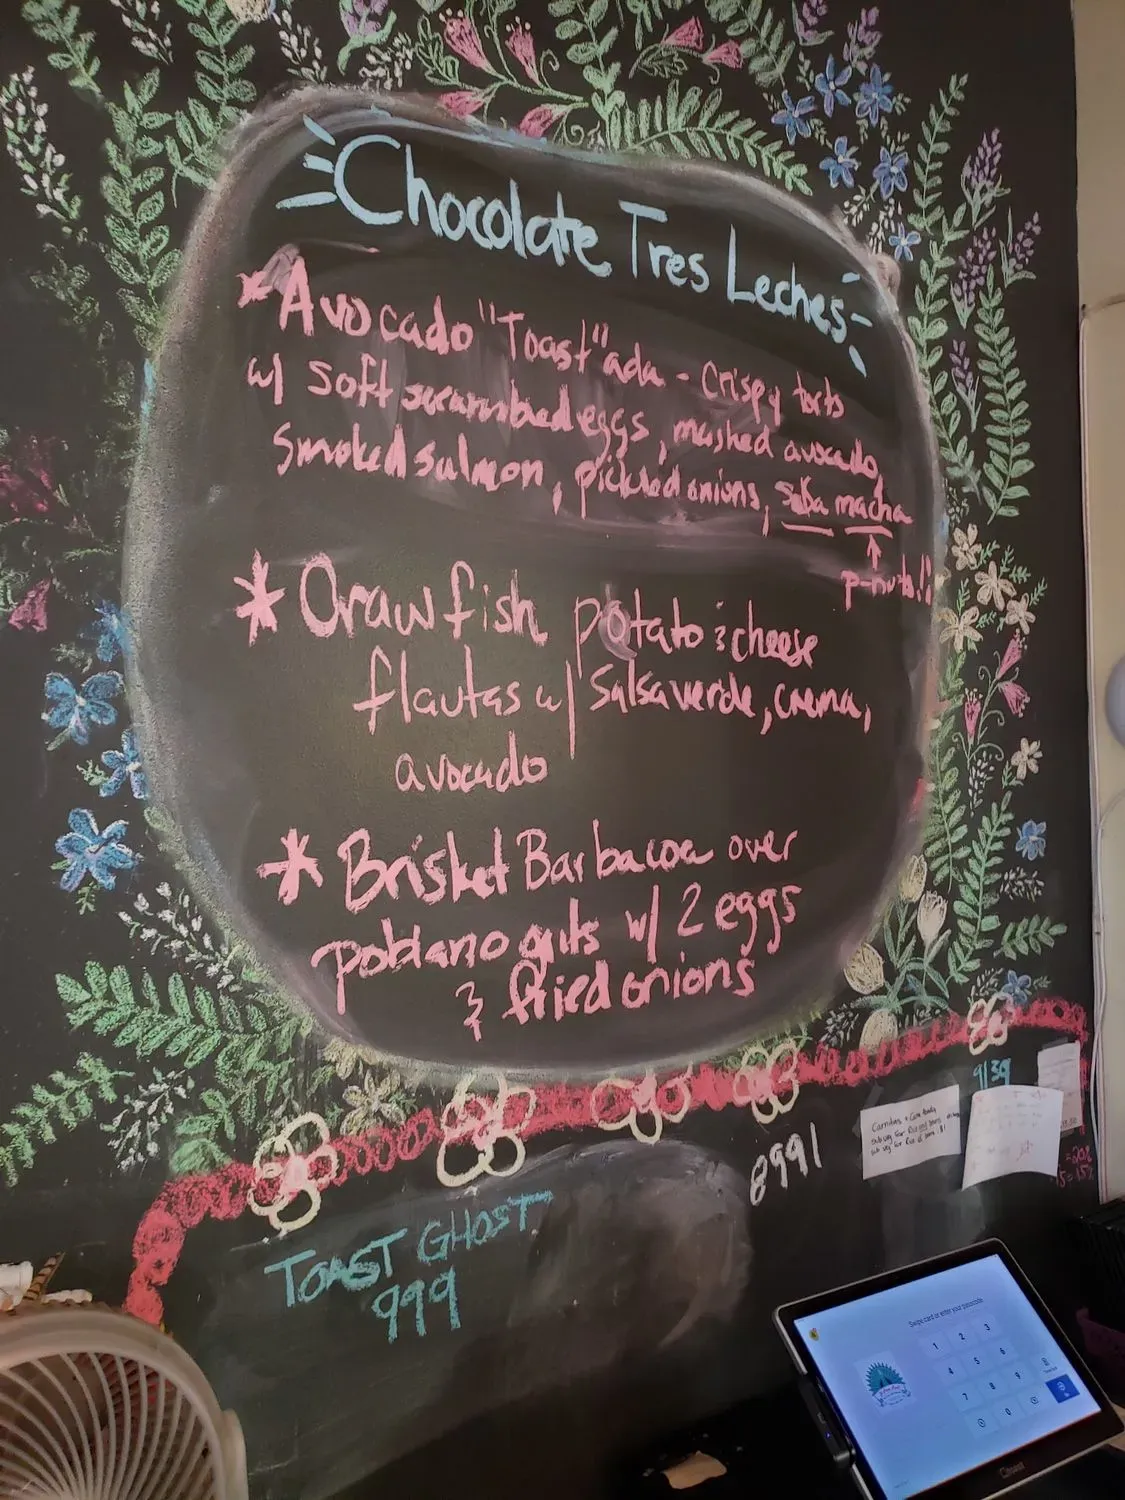 Chocolate Tres Leches
* Avocado "Toast"ada - Crispy torts
w/ soft scrambled eggs, mashed avocado,
Smoked salmon, pickled onions, salsa macha
↑
p-nuts!!
* Crawfish potato & cheese
flautas w/ Salsa verde, crema,
avocado
* Brisket Barbacoa over
poblano grits w/ 2 eggs
& fried onions
9139
8991
TOAST GHOST
999
Swipe card or enter your passcode
1 2 3
4 5 6
7 8 9
0
toast